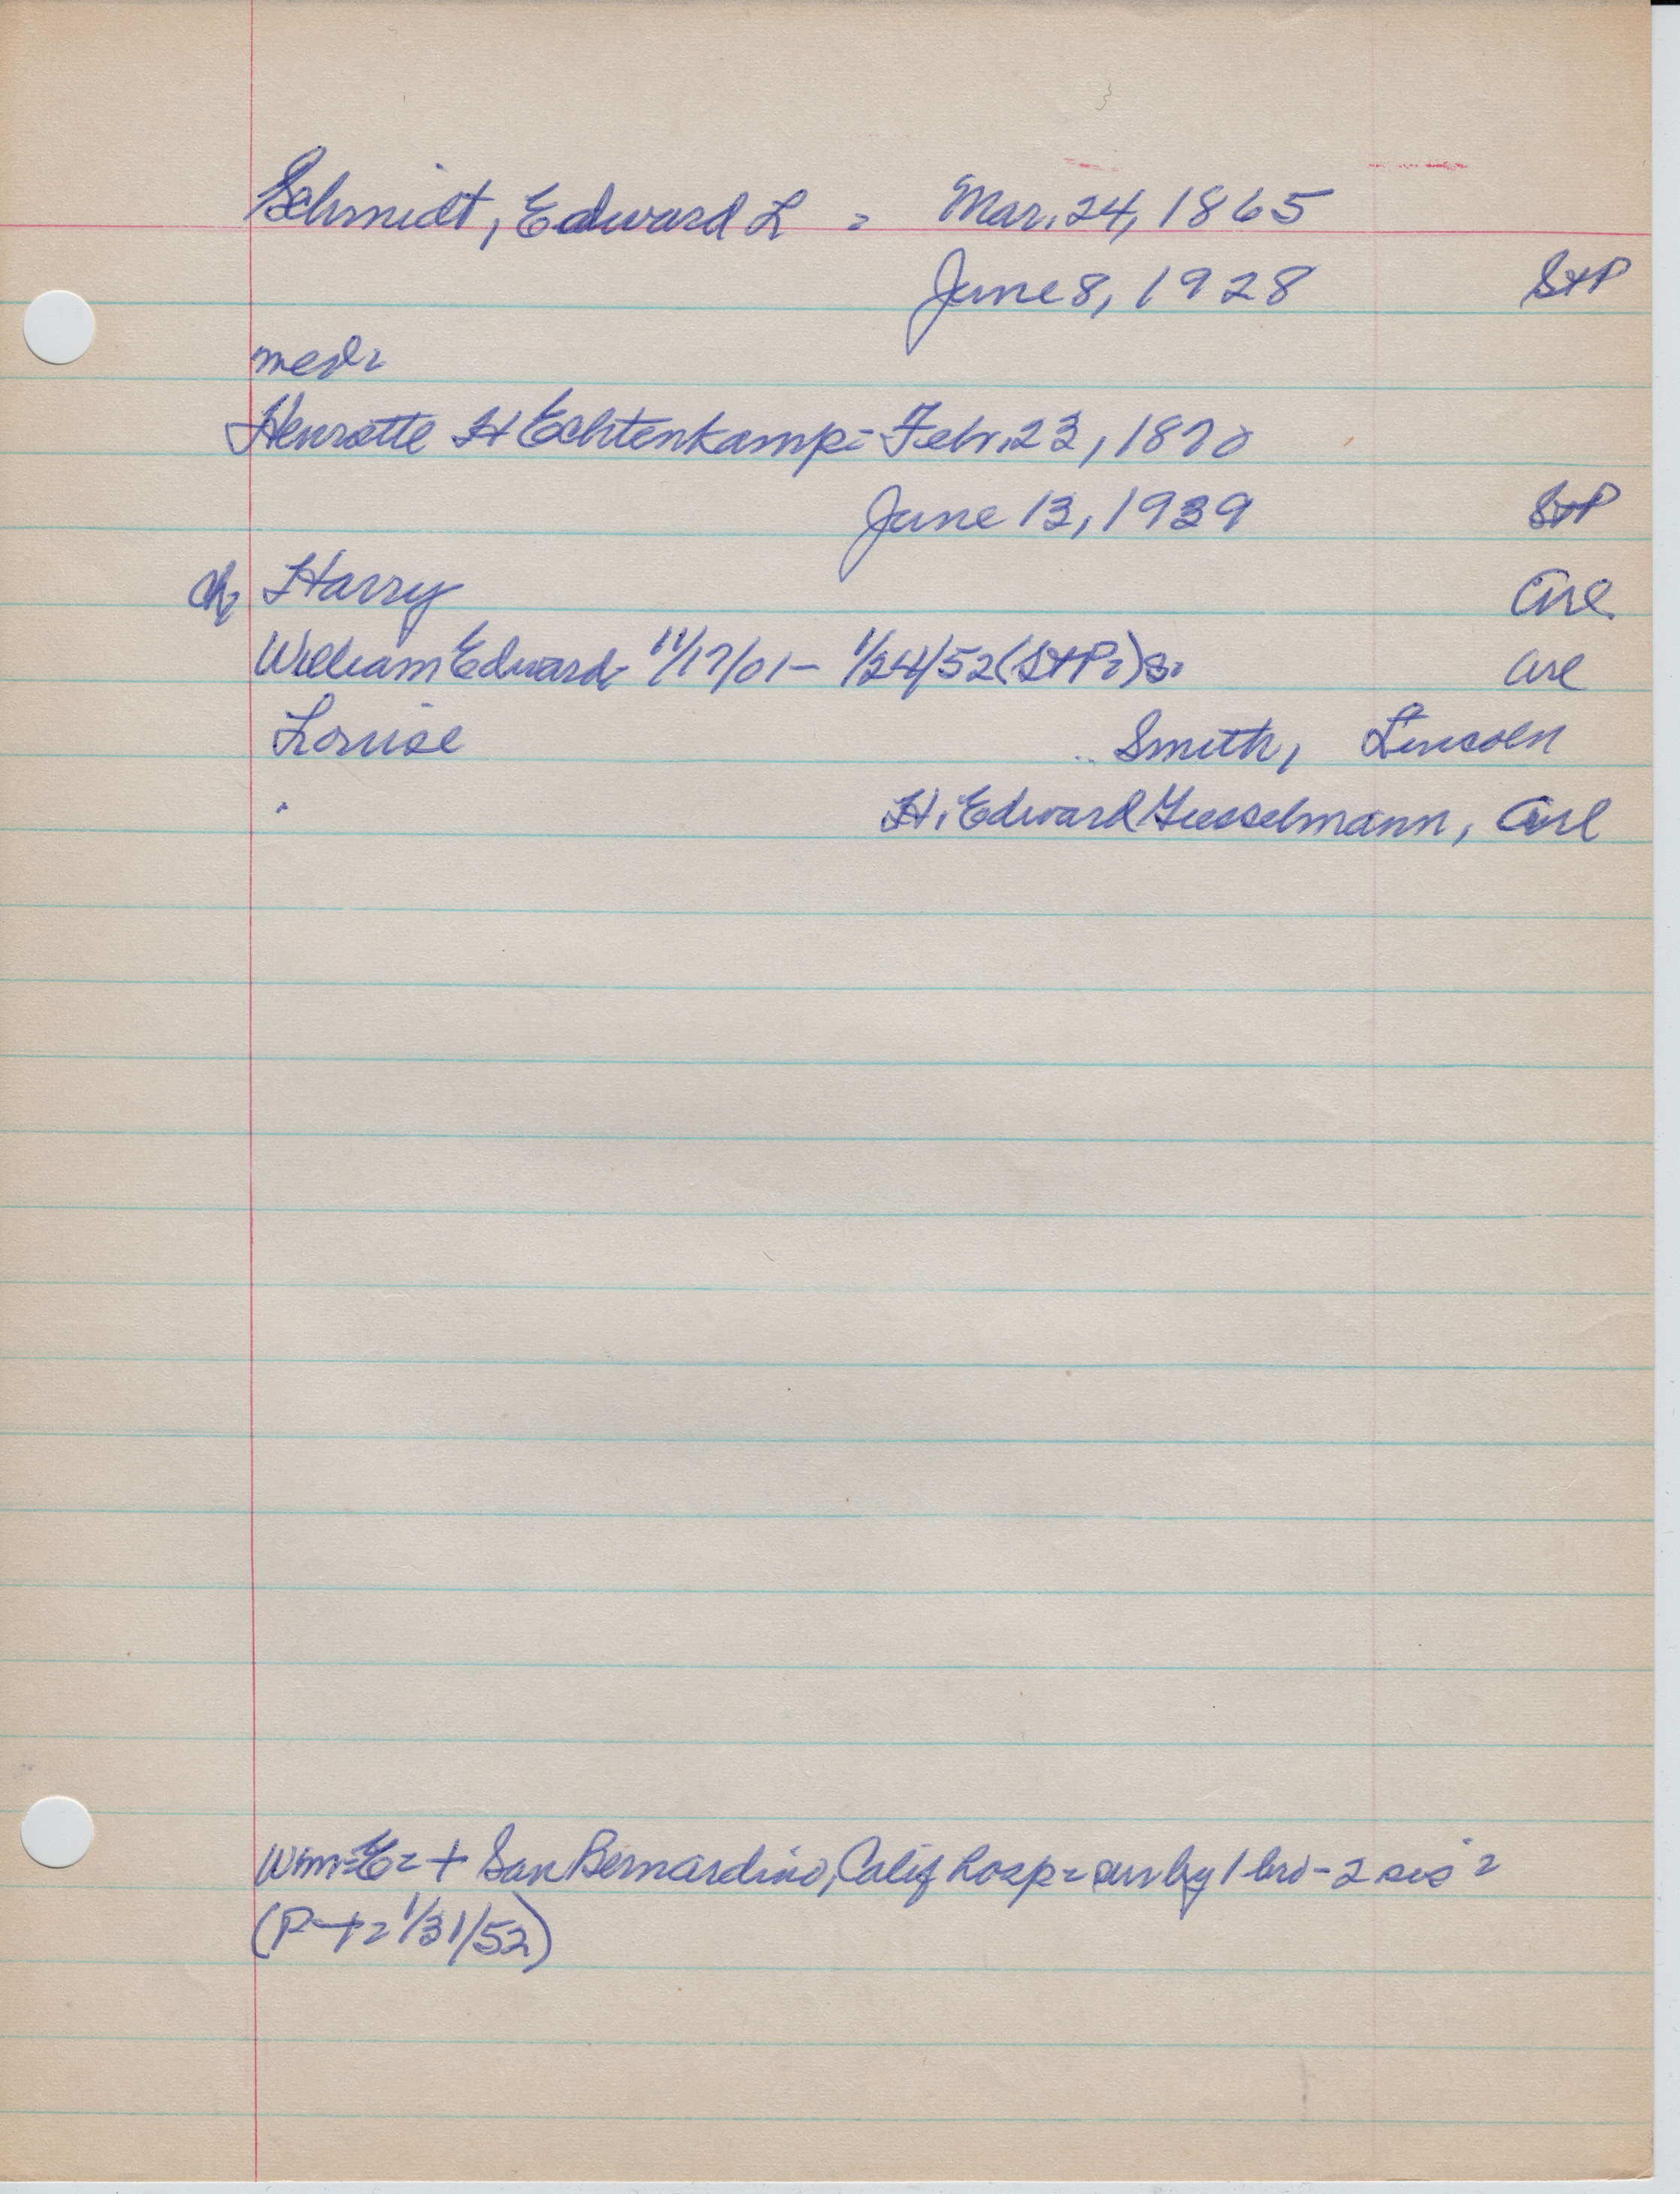 Schmidt, Edward L = Mar. 24, 1865
June 8, 1928 StP
Henrette H Echtenkamp = Febr. 23, 1870
June 13, 1939 StP
ch Harry Arl
William Edward - 11/17/01 - 1/24/52 (StP=) s. Arl
Louise Smith, Lincoln
H. Edward Giesselmann, Arl
Wm E = + San Bernardino, Calif hosp = sur by 1 bro - 2 sis =
(P + = 1/31/52)